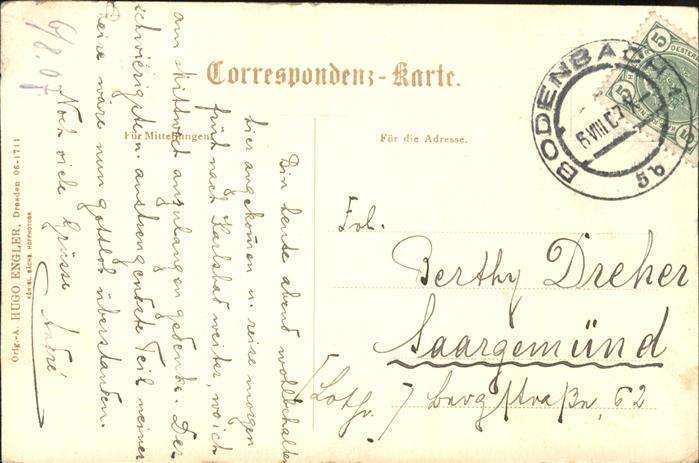 Correspondenz-Karte.
Für Mitteilungen.
Für die Adresse.
BODENBACH 1
6 VIII 07
5b
5
5
Frl.
Berthy Dreher
Saargemünd
/Lothr./ Bergstraße, 62
6/8.07
Bin heute abend wohlbehalten
hier angekommen u. reise morgen
früh nach Karlsbad weiter, wo ich
am Mittwoch anzulangen gedenke. Der
schwierigste u. anstrengendste Teil meiner
Reise wäre nun gottlob überstanden.
Noch viele Grüsse
André
Orig.-A. HUGO ENGLER, Dresden 06-1711
KÖNIGL. SÄCHS. HOFPHOTOGR.